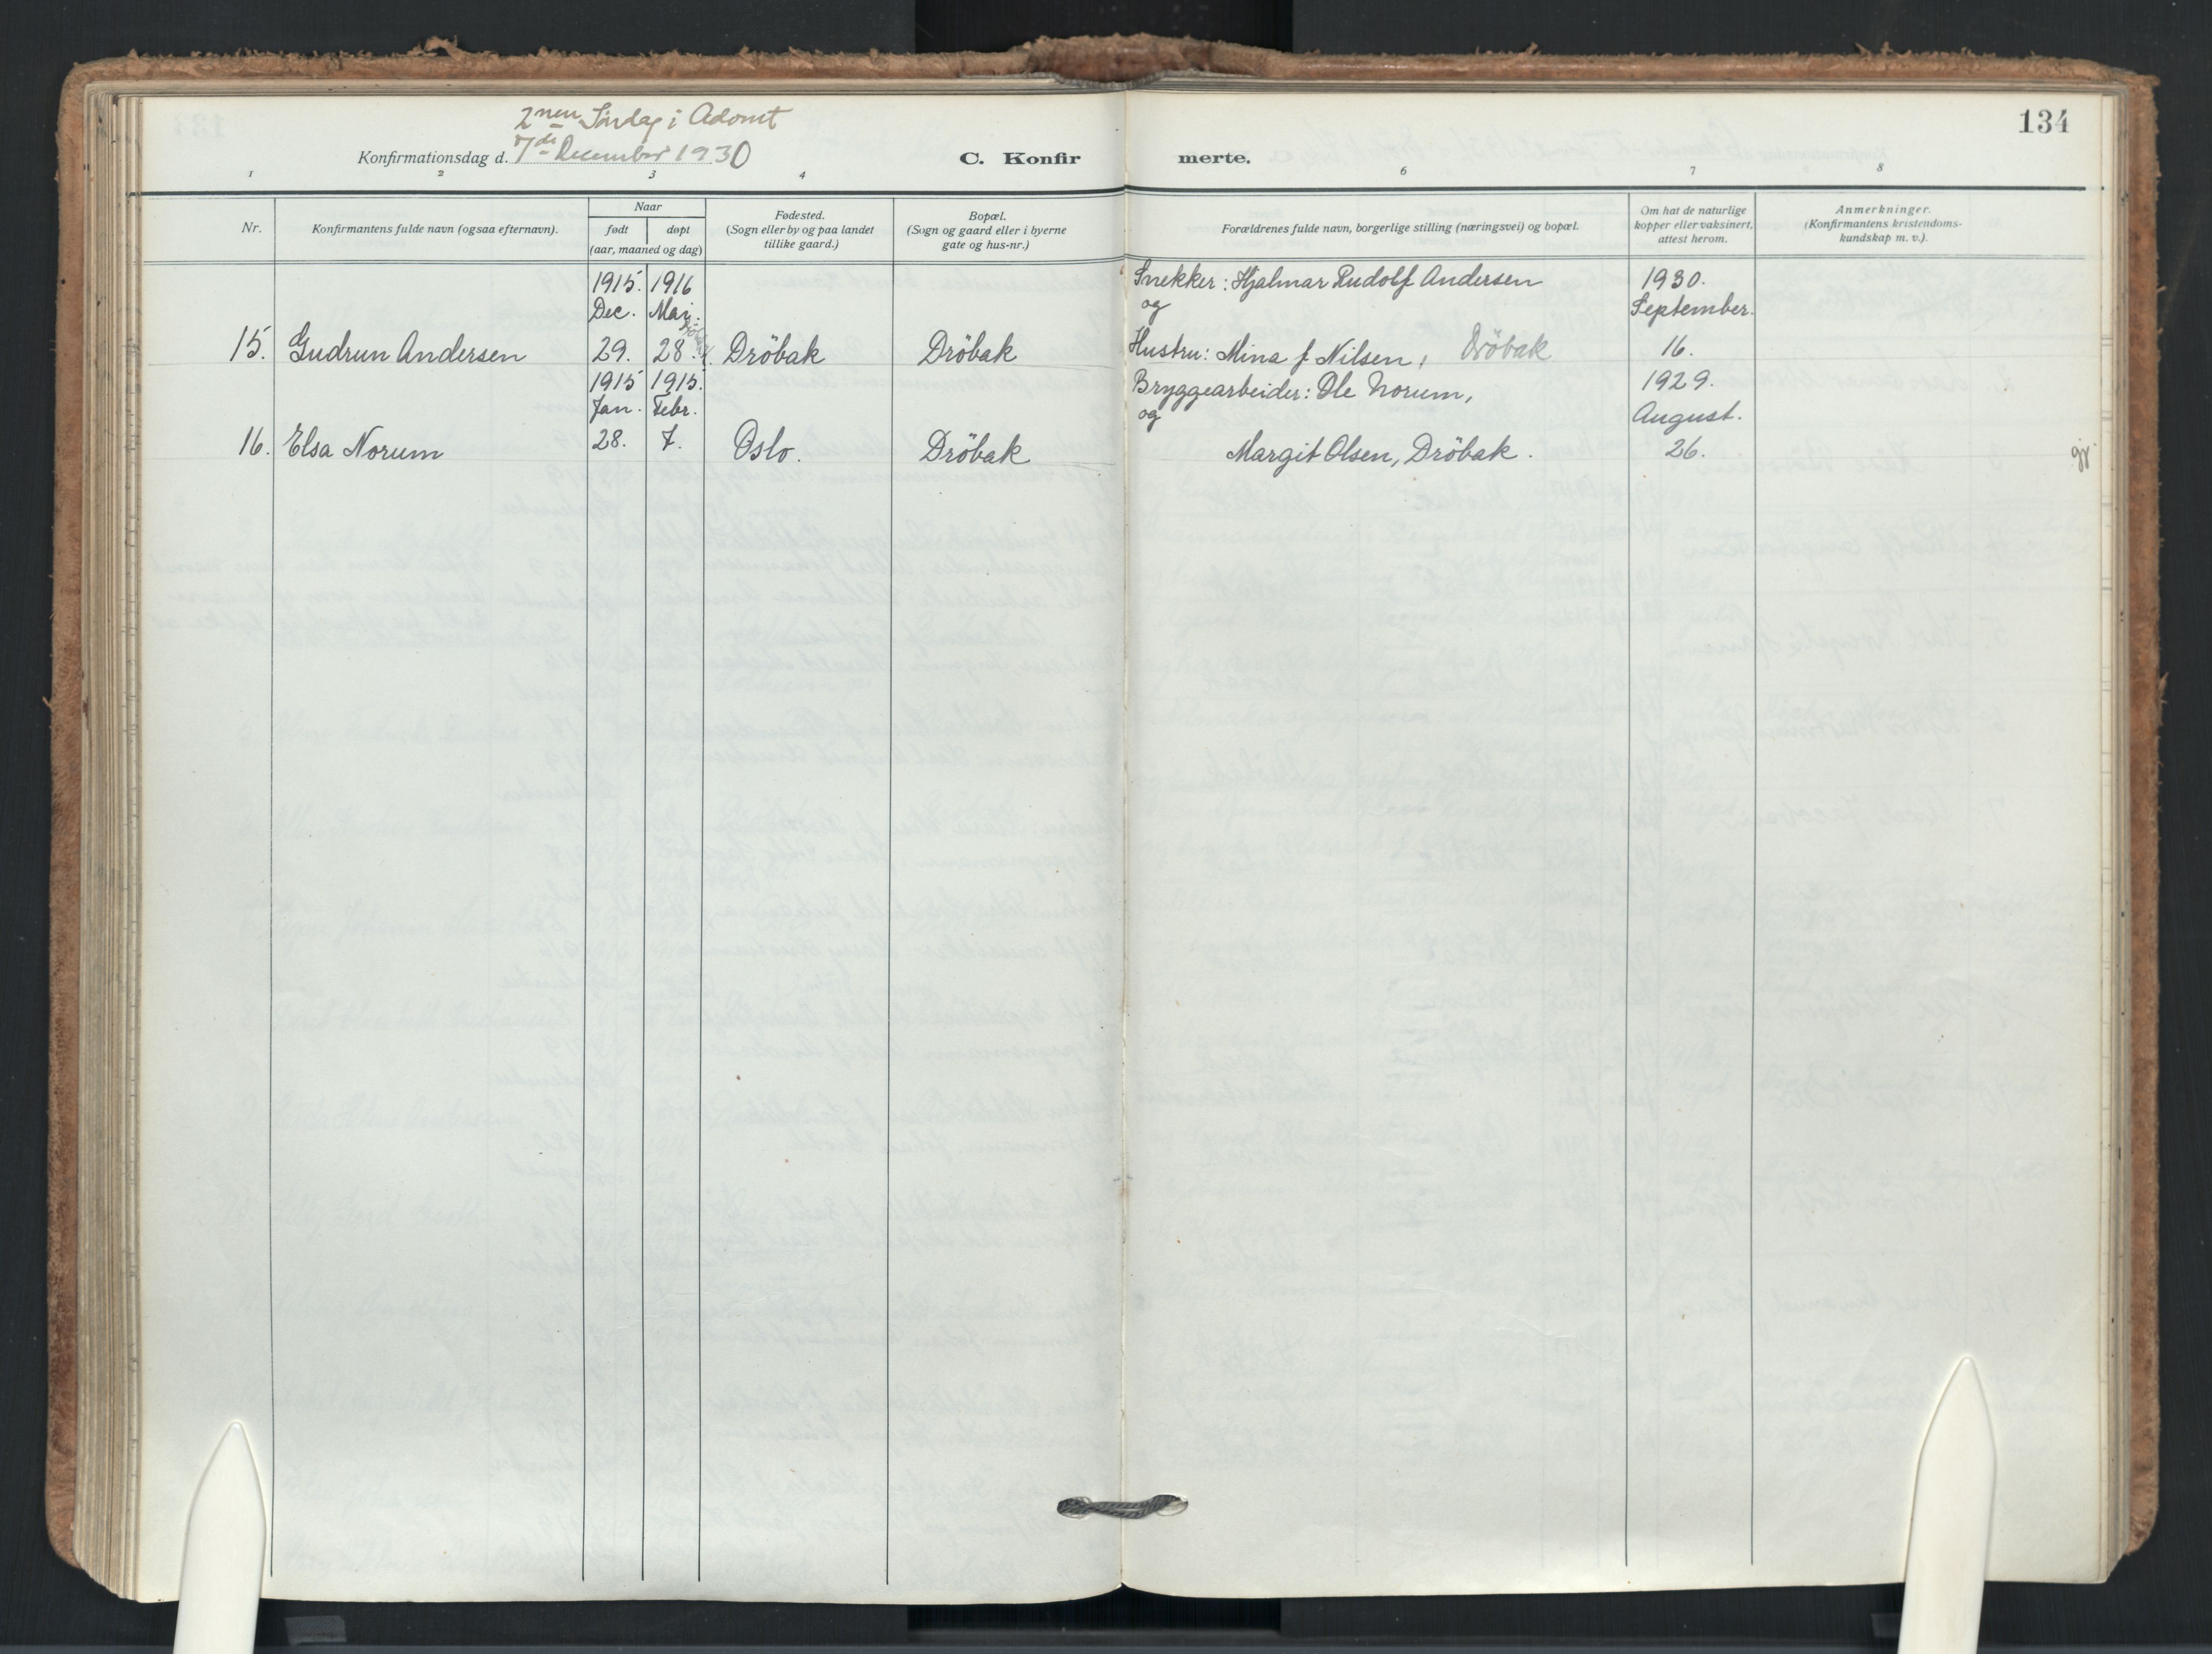 134
2nen Søndag i Advent
Konfirmationsdag d. 7de December 1930
C. Konfirmerte.
1 2 3 4 6 7 8
Nr.
Konfirmantens fulde navn (ogsaa efternavn).
Naar
født døpt
(aar, maaned og dag)
Fødested.
(Sogn eller by og paa landet
tillike gaard.)
Bopæl.
(Sogn og gaard eller i byerne
gate og hus-nr.)
Forældrenes fulde navn, borgerlige stilling (næringsvei) og bopæl.
Om hat de naturlige
kopper eller vaksinert,
attest herom.
Anmerkninger.
(Konfirmantens kristendoms-
kundskap m. v.).
1915. 1916 Snekker: Hjalmar Rudolf Andersen 1930.
Dec. Mai. og September.
15. Gudrun Andersen 29. 28. Dröbak Dröbak Hustru: Mina f. Nilsen, Dröbak 16.
1915 1915. Bryggearbeider: Ole Norum, 1929.
Jan. Febr. og August.
16. Elsa Norum 28. 7. Oslo. Dröbak Margit Olsen, Dröbak. 26.